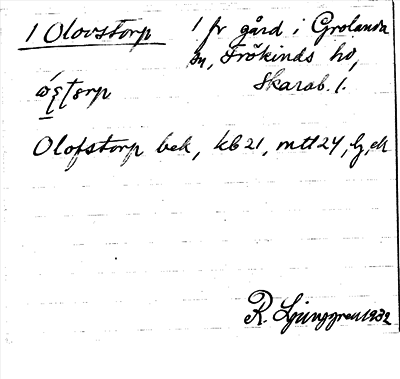 1 Olovstorp 1 fr gård i Grolanda
sn, Frökinds hd,
Skarab. l.
Olofstorp bek, kb 21, mtl 24,
R. Ljunggren 1932